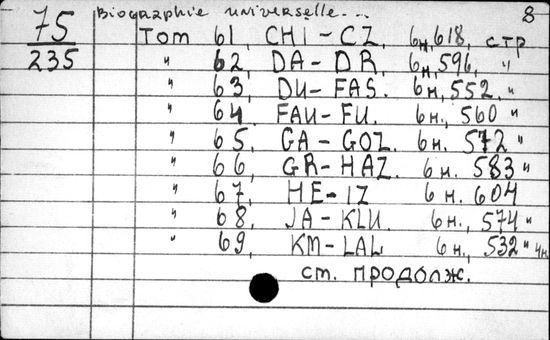 Biographie universelle... 8
75
235
Том 61, CHI-CZ, 6н, 618, стр
" 62, DA-DR, 6н, 596, "
" 63, DU-FAS. 6н, 552, "
" 64, FAU-FU. 6н., 560 "
" 65, GA-GOZ. 6н. 572 "
" 66, GR-HAZ. 6н. 583 "
" 67, HE-IZ 6 н. 604
" 68, JA-KLU. 6н., 574 "
" 69, KM-LAL 6н., 532 " 4н.
ст. продолж.